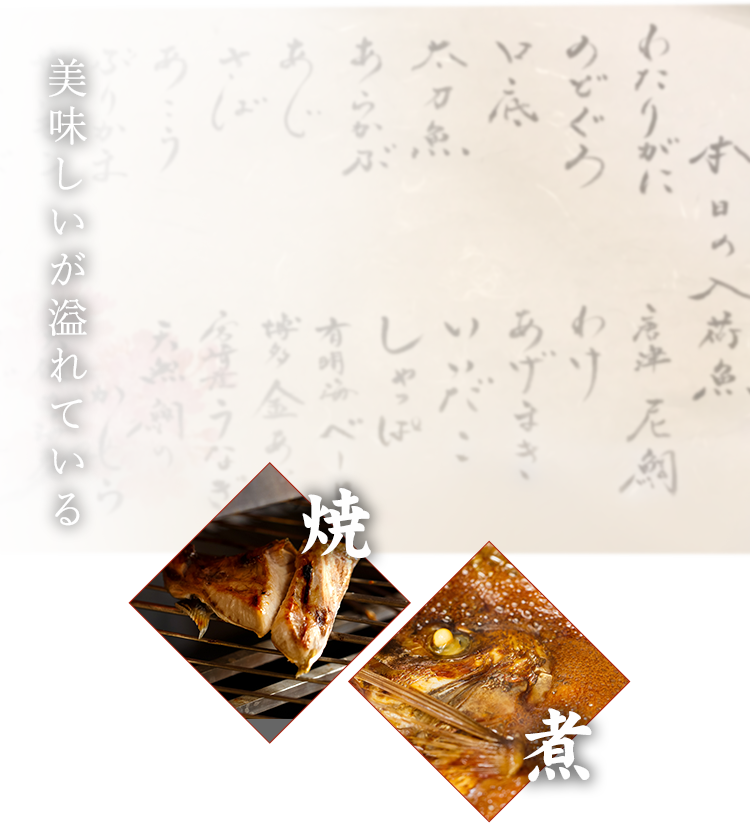 本日の入荷魚
わたりがに
のどぐろ
口底
太刀魚
あらかぶ
あじ
さば
あこう
ぶりかま
唐津 尼鯛
わけ
あげまき
いいだこ
しゃっぱ
有明海 べー
博多 金あ
うなぎ
天然鯛の
かしら
美味しいが溢れている
焼
煮